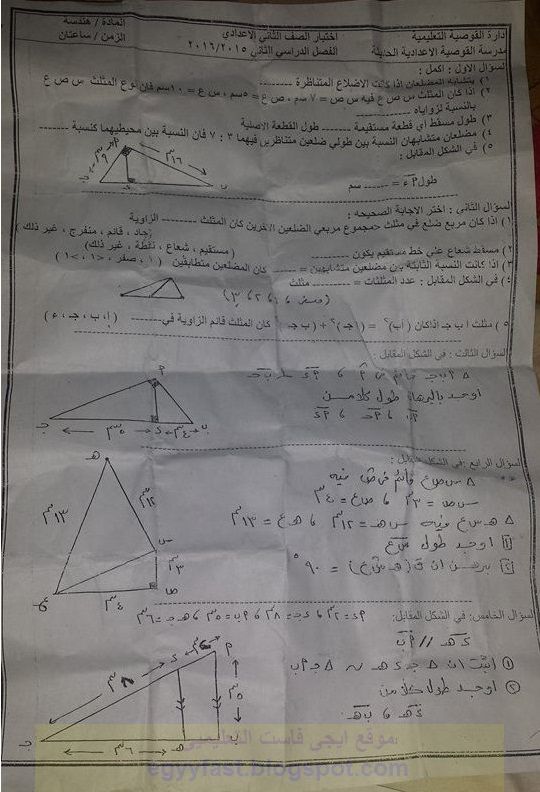 إدارة القوصية التعليمية
اختبار الصف الثاني الاعدادي
المادة / هندسة
مدرسة القوصية الاعدادية الحديثة
الفصل الدراسي الثاني ٢٠١٦/٢٠١٥
الزمن / ساعتان
السؤال الاول : اكمل :
١) يتشابه المضلعان اذا كانت الاضلاع المتناظرة ........
٢) اذا كان المثلث س ص ع فيه س ص = ٧ سم ، ص ع = ٥سم ، س ع = ١٠سم فان نوع المثلث س ص ع
بالنسبة لزواياه ........
٣) طول مسقط أي قطعة مستقيمة ........ طول القطعة الاصلية
٤) مضلعان متشابهان النسبة بين طولي ضلعين متناظرين فيهما ٣ : ٧ فان النسبة بين محيطيهما كنسبة ........
٥) في الشكل المقابل :
طول ءP = ........ سم
السؤال الثاني : اختر الاجابة الصحيحة :
١) اذا كان مربع ضلع في مثلث =مجموع مربعي الضلعين الاخرين كان المثلث ........ الزاوية
(حاد ، قائم ، منفرج ، غير ذلك )
٢) مسقط شعاع علي خط مستقيم يكون ........
( مستقيم ، شعاع ، نقطة ، غير ذلك)
٣) اذا كانت النسبة الثابتة بين مضلعين متشابهين = ........ كان المضلعين متطابقين ( ١ ، صفر ، >١ ، <١ )
٤) في الشكل المقابل : عدد المثلثات = ........ مثلث
( صفر ، ١ ، ٢ ، ٣ )
٥) مثلث أ ب جـ اذاكان (أ ب)٢ = (أ جـ)٢ + (ب جـ)٢ كان المثلث قائم الزاوية في........ (أ ، ب ، جـ ، ء )
السؤال الثالث : في الشكل المقابل :
اوجد بالبرهان طول كلا من
السؤال الرابع :في الشكل المقابل :
△ س ص ع قائم في ص فيه
س ص = ٣سم ، ص ع = ٤سم
△ هـ س ع فيه س هـ = ١٢سم ، هـ ع = ١٣سم
١ اوجد طول س ع
٢ برهن ان ق (هـ س ع) = ٩٠°
السؤال الخامس: في الشكل المقابل:
ء هـ // P ب
① اثبت ان △ جـ ء هـ ~ △ جـ P ب
② اوجد طول كلا من
ء هـ ، ب هـ
موقع ايجى فاست التعليمى
egyyfast.blogspot.com